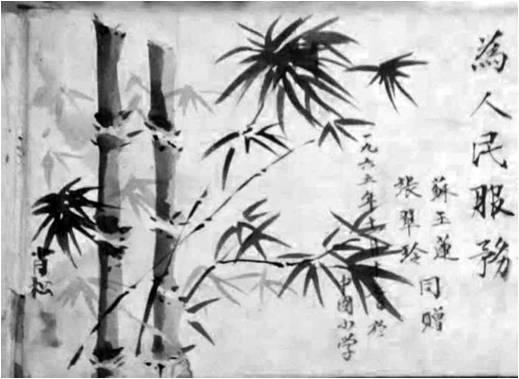 為人民服務
蘇玉蓮
張翠玲
同贈
一九六五年十月 於
中國小学